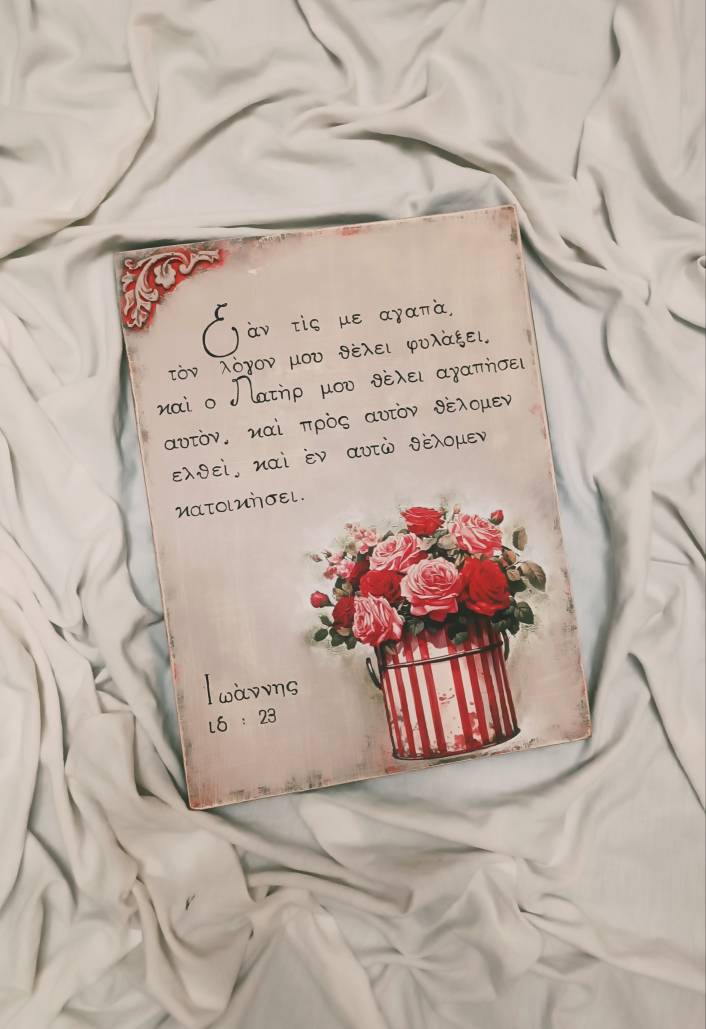 Εὰν τὶς με αγαπὰ,
τὸν λὸγον μου θὲλει φυλὰξει,
καὶ ο Πατὴρ μου θὲλει αγαπὴσει
αυτὸν, καὶ πρὸς αυτὸν θὲλομεν
ελθεὶ, καὶ ὲν αυτὼ θὲλομεν
κατοικὴσει.
Ιωὰννης
ιδ : 23